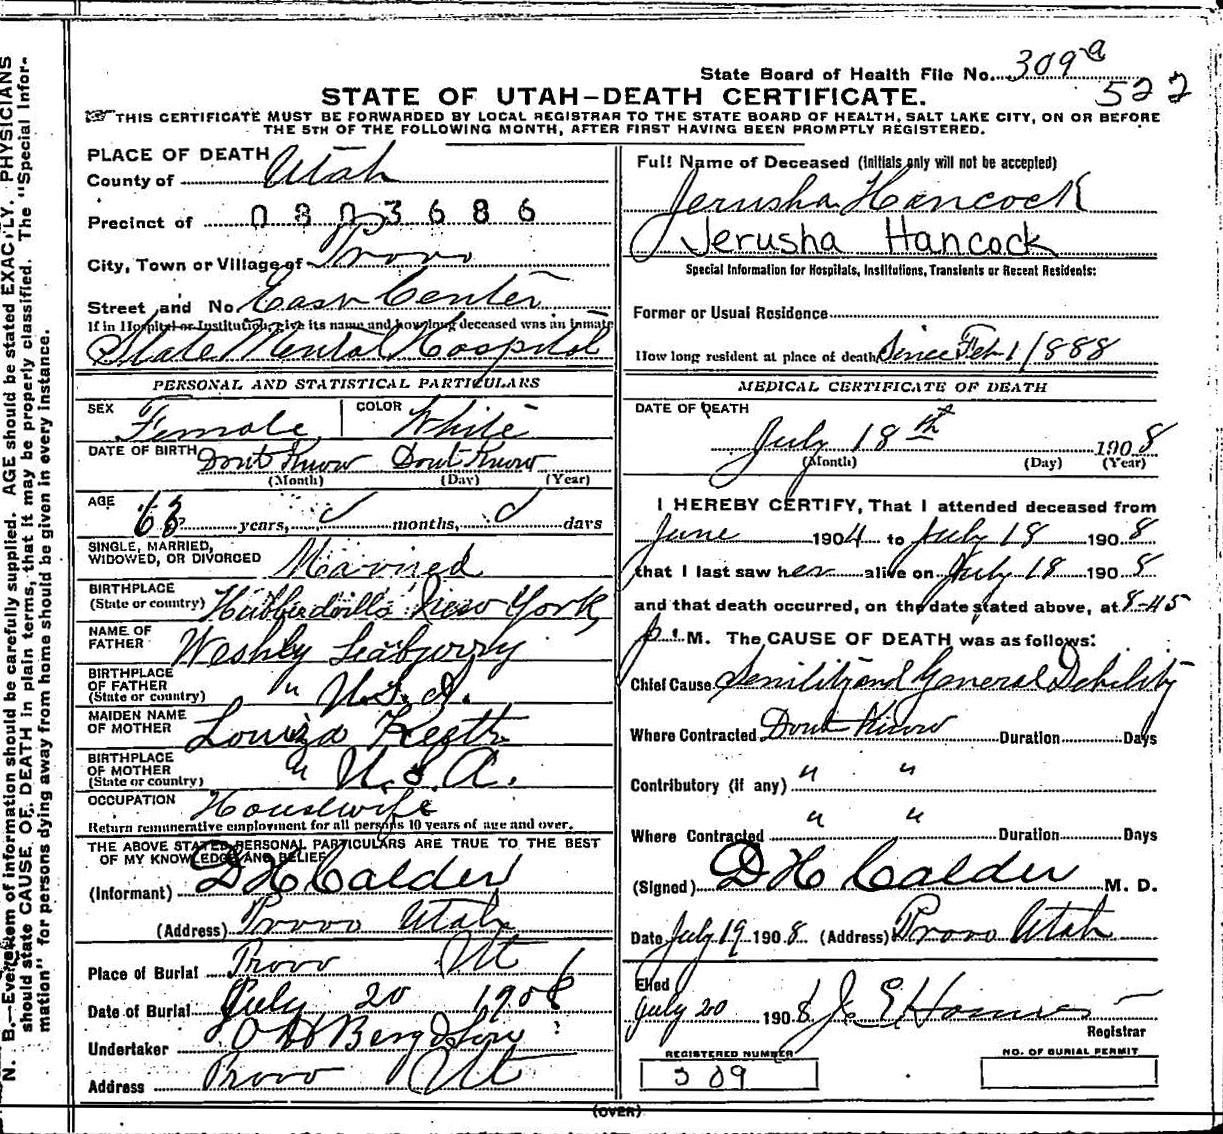 State Board of Health File No. 309a
522
STATE OF UTAH—DEATH CERTIFICATE.
THIS CERTIFICATE MUST BE FORWARDED BY LOCAL REGISTRAR TO THE STATE BOARD OF HEALTH, SALT LAKE CITY, ON OR BEFORE
THE 5TH OF THE FOLLOWING MONTH, AFTER FIRST HAVING BEEN PROMPTLY REGISTERED.
PLACE OF DEATH
County of Utah
Precinct of 0803686
City, Town or Village of Provo
Street and No. East Center
If in Hospital or Institution, give its name and how long deceased was an inmate
State Mental Hospital
PERSONAL AND STATISTICAL PARTICULARS
SEX Female COLOR White
DATE OF BIRTH Dont Know Dont Know
(Month) (Day) (Year)
AGE 63 years, months, days
SINGLE, MARRIED,
WIDOWED, OR DIVORCED Married
BIRTHPLACE
(State or country) Hubbardville New York
NAME OF
FATHER
BIRTHPLACE
OF FATHER
(State or country) " U.S.A.
MAIDEN NAME
OF MOTHER Louiza
BIRTHPLACE
OF MOTHER
(State or country) " U.S.A.
OCCUPATION Housewife
Return remunerative employment for all persons 10 years of age and over.
THE ABOVE STATED PERSONAL PARTICULARS ARE TRUE TO THE BEST
OF MY KNOWLEDGE AND BELIEF
(Informant) D H Calder
(Address) Provo Utah
Place of Burial Provo Ut
Date of Burial July 20 1908
Undertaker O H Berg & Son
Address Provo Ut
Full Name of Deceased (initials only will not be accepted)
Jerusha Hancock
Jerusha Hancock
Special Information for Hospitals, Institutions, Transients or Recent Residents:
Former or Usual Residence
How long resident at place of death Since Feb 1/1888
MEDICAL CERTIFICATE OF DEATH
DATE OF DEATH
July 18th 1908
(Month) (Day) (Year)
I HEREBY CERTIFY, That I attended deceased from
June 1904 to July 18 1908
that I last saw her alive on July 18 1908
and that death occurred, on the date stated above, at 8-45
p. M. The CAUSE OF DEATH was as follows:
Chief Cause Senility and General Debility
Where Contracted Dont Know Duration Days
Contributory (if any) " "
Where Contracted " " Duration Days
(Signed) D H Calder M. D.
Date July 19 1908 (Address) Provo Utah
Filed
July 20 1908
Registrar
REGISTERED NUMBER
309
NO. OF BURIAL PERMIT
(OVER)
N. B.—Every item of information should be carefully supplied. AGE should be stated EXACTLY. PHYSICIANS
should state CAUSE OF DEATH in plain terms, that it may be properly classified. The "Special Infor-
mation" for persons dying away from home should be given in every instance.